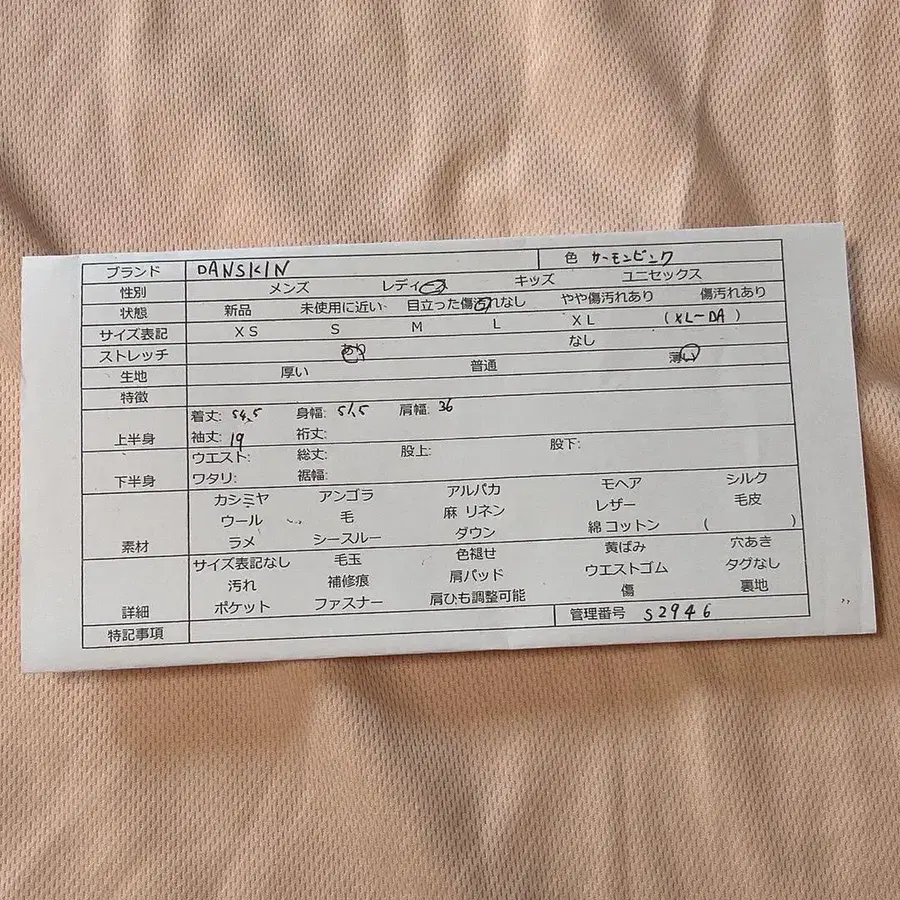 ブランド DANSKIN 色 サーモンピンク
性別 メンズ レディース キッズ ユニセックス
状態 新品 未使用に近い 目立った傷汚れなし やや傷汚れあり 傷汚れあり
サイズ表記 XS S M L XL (XL-DA)
ストレッチ あり なし
生地 厚い 普通 薄い
特徴
上半身 着丈: 54.5 身幅: 51.5 肩幅: 36
袖丈: 19 裄丈:
下半身 ウエスト: 総丈: 股上: 股下:
ワタリ: 裾幅:
素材 カシミヤ アンゴラ アルパカ モヘア シルク
ウール 毛 麻 リネン レザー 毛皮
ラメ シースルー ダウン 綿 コットン ( )
詳細 サイズ表記なし 毛玉 色褪せ 黄ばみ 穴あき
汚れ 補修痕 肩パッド ウエストゴム タグなし
ポケット ファスナー 肩ひも調整可能 傷 裏地
特記事項 管理番号 S2946